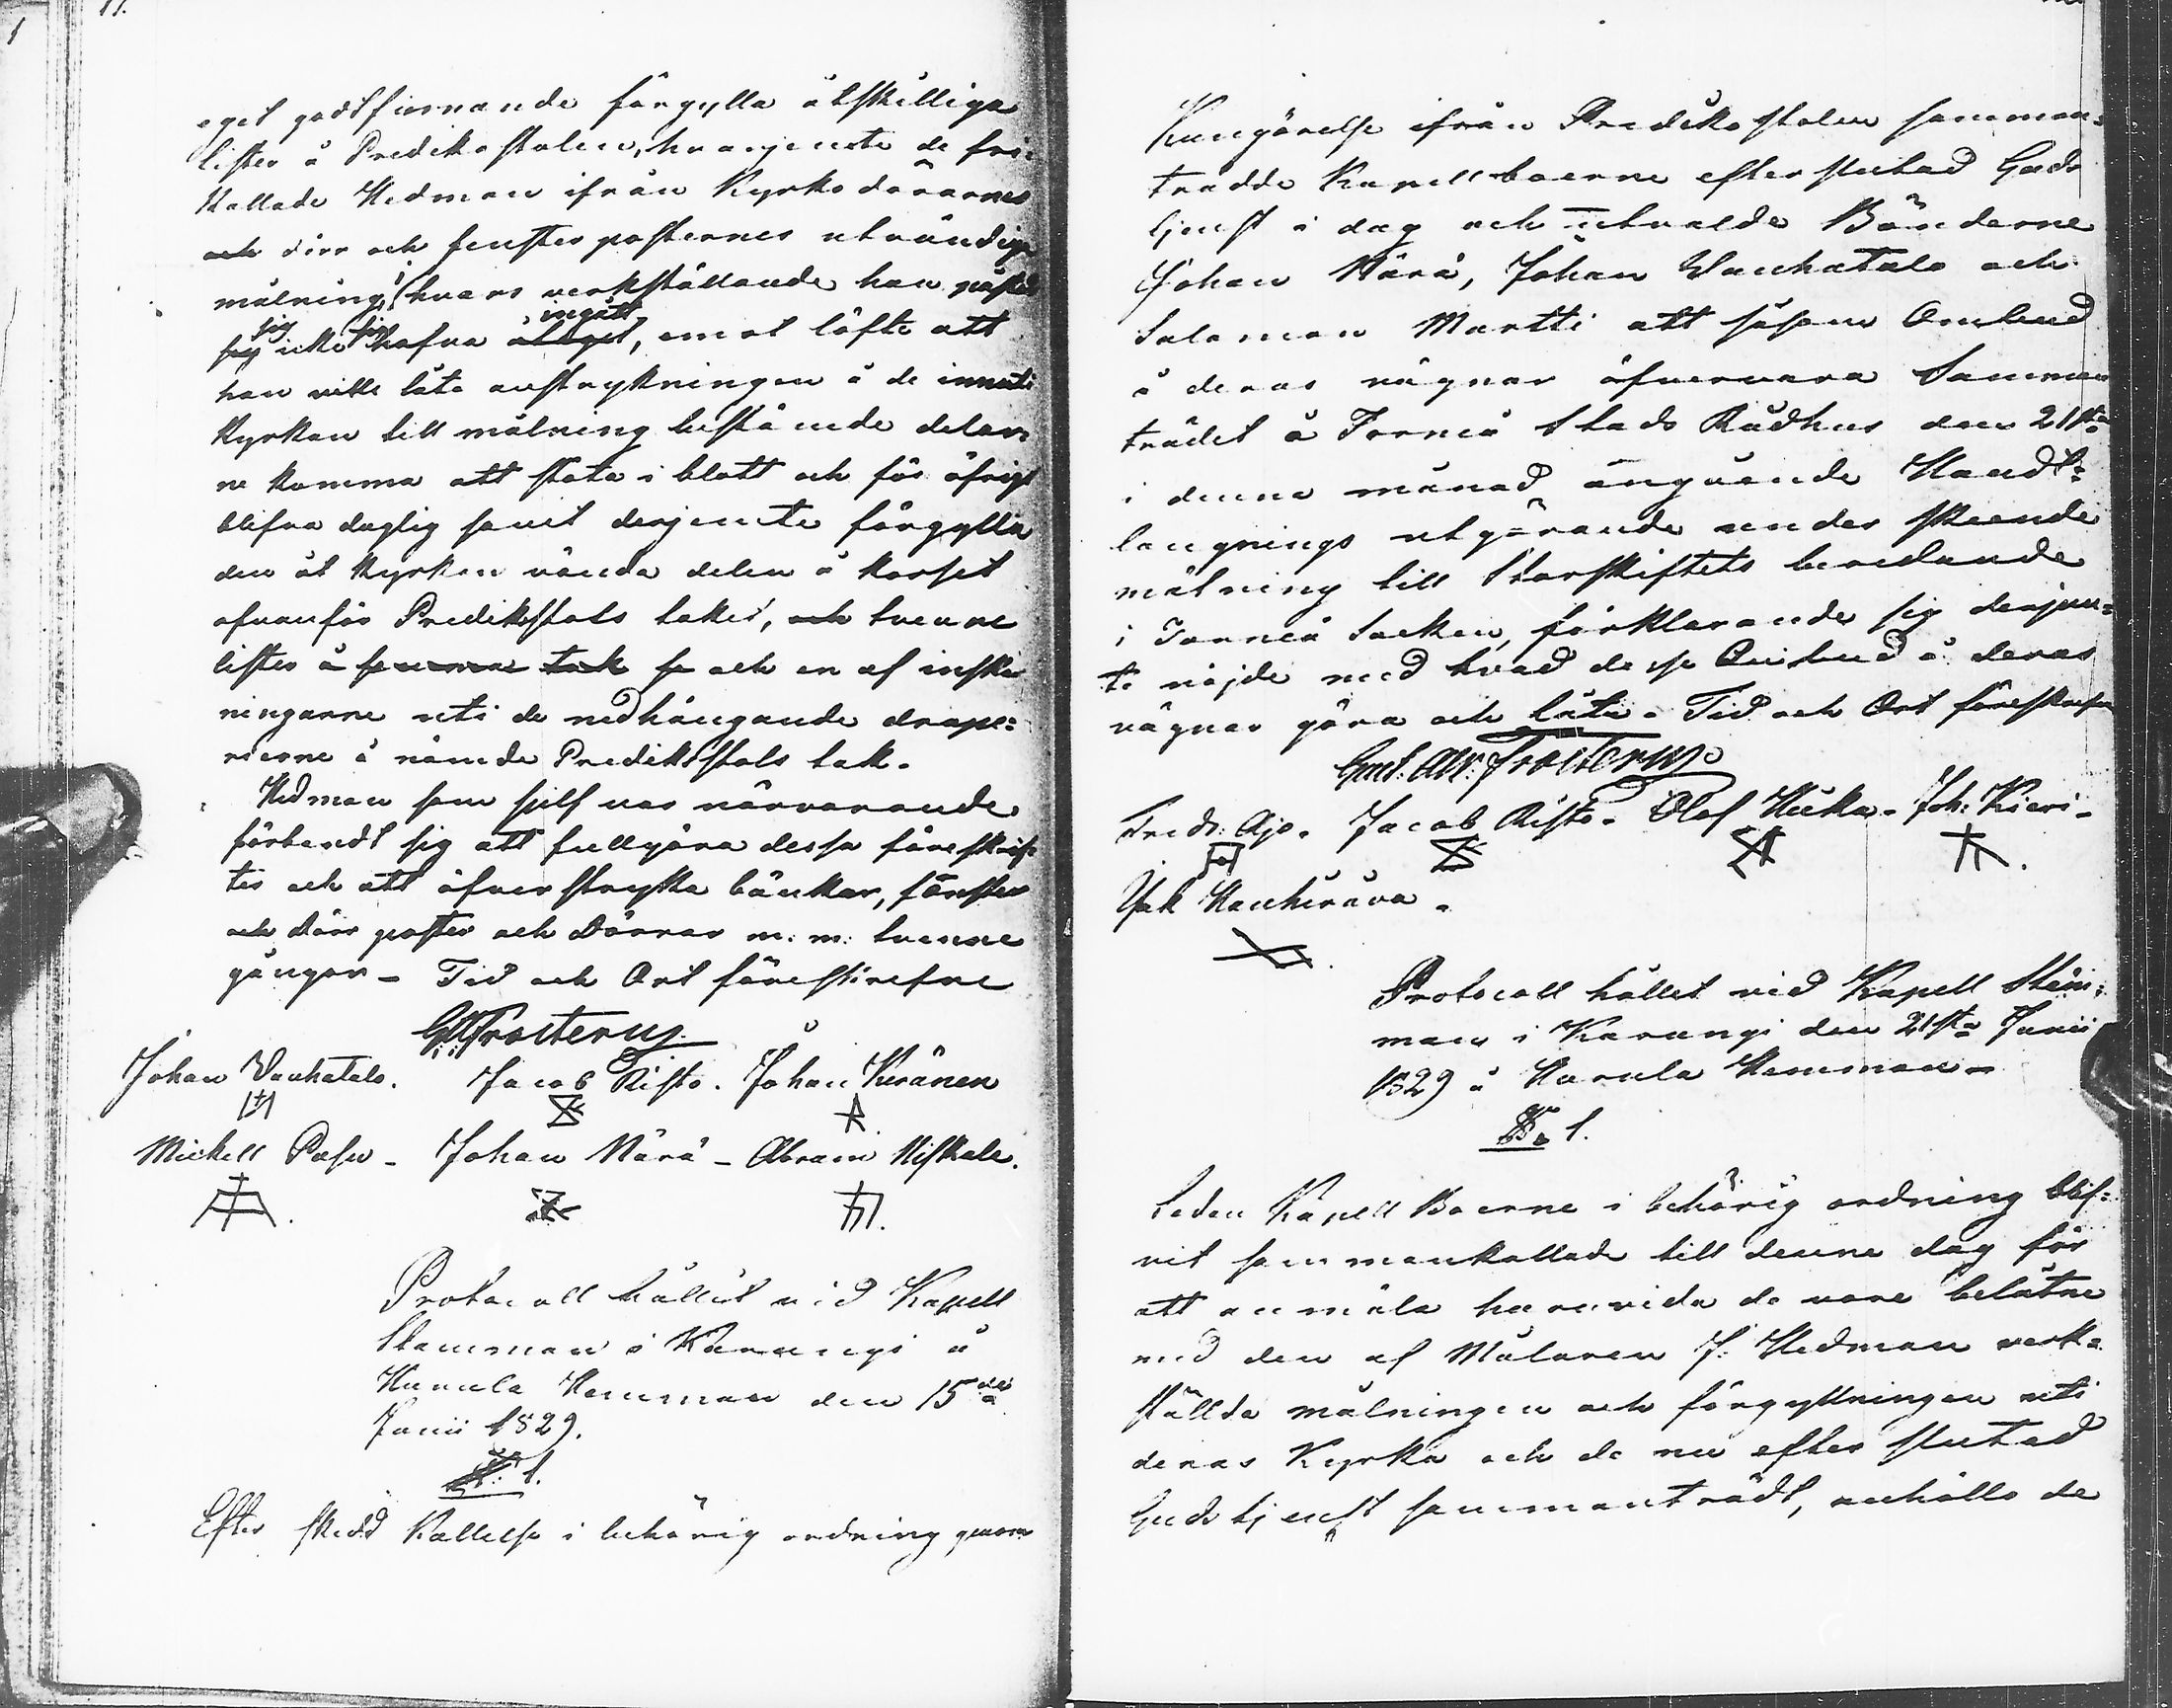 eget godtfinnande förgylla åtskilliga
lister å Predikostolen, hvarjemte de fri-
kallade Hedman ifrån Kyrkodörarnes
och dörr och fensterposternes utvändiga
målning, (hvars verkställande han påstod
sig icke hafva ingått, emot löfte att
han ville låta anstrykningen å de innuti
Kyrkan till målning bestående delar-
ne komma att stöta i blott och för öfrigt
blifva duglig samt derjemte förgylla
den åt Kyrkan vända delen å korset
ofvanför Predikstols taket, och tvenne
lister å och en af infski
ningarne uti de nedhängande drape=
rierne å nämde Predikstols tak.
Hedman som sjelf var närvarande
förbandt sig att fullgöra dessa föreskrif-
ter och att öfverstryka bänkar, fönster
och dörr poster och Dörrar m. m. tvenne
gångor – Tid och Ort förestrefne
G: A: Frosterus.
Johan Vanhatalo. Jacob Risto. Johan Keränen
Mickell Pasu – Johan Närä – Abram Niskala.
Protocoll hållit vid Kapell
Stamman i Karungi å
Hannula Hemman den 15de
Junii 1829.
§. 1.
Efter skedd Kallelse i behörig ordning genom
Kungörelse ifrån Predikostolen samman=
trädde Kapellboerne efter slutad Guds
tjenst i dag och utvalde Bönderne
Johan Närä, Johan Vanhatalo och
Salomon Martti att såsom Ombud
å deras vägnar öfvervara Samman
trädet å Torneå Stads Rådhus den 21sta
i denna månad angående Handt=
langnings utgörande under skeende
mätning till Storskiftets beredande
i Torneå Socken, förklarande sig derjem=
te nöjde med hvad desse Ombud å deras
vägnar göra och låta. Tid och Ort föreskrefne
Gust: Ad: Frosterus
Fredr: Ajo. Jacob Risto. Olof Hietka. Joh: Kieri.
Isak Hanhirova.
Protocoll hållet vid Kapell Stäm=
man i Karungi den 21sta Junii
1829 å Hanula Hemman
§. 1.
Sedan Kapell Boerne i behörig ordning blif=
vit sammankallade till denne dag för
att anmäla huruvida de vore belåtne
med den af Målaren J: Hedman verk=
ställde målningen och förgyllningen uti
deras Kyrka och de nu efter slutad
Gudstjenst sammanträdt, anhöllo de